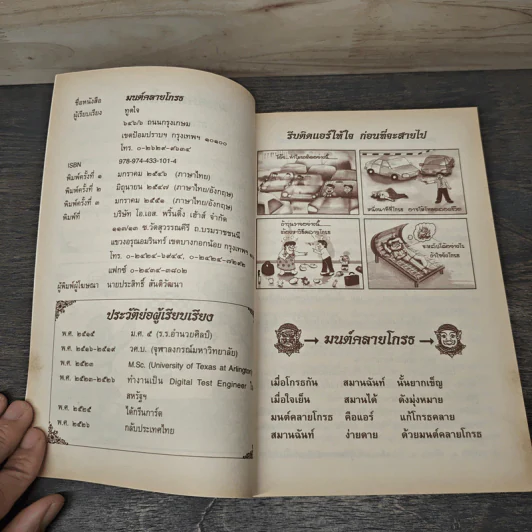 ชื่อหนังสือ มนต์คลายโกรธ
ผู้เรียบเรียง ทูตใจ
๖๔๖/๖ ถนนกรุงเกษม
เขตป้อมปราบฯ กรุงเทพฯ ๑๐๑๐๐
โทร. ๐-๒๖๒๙-๙๖๓๔
ISBN 978-974-433-101-4
พิมพ์ครั้งที่ ๑ มกราคม ๒๕๔๖ (ภาษาไทย)
พิมพ์ครั้งที่ ๒ มิถุนายน ๒๕๔๗ (ภาษาไทย/อังกฤษ)
พิมพ์ครั้งที่ ๓ มกราคม ๒๕๕๑ (ภาษาไทย/อังกฤษ)
พิมพ์ที่ บริษัท โอ.เอส. พริ้นติ้ง เฮ้าส์ จำกัด
๑๑๓/๑๓ ซ.วัดสุวรรณคีรี ถ.บรมราชชนนี
แขวงอรุณอมรินทร์ เขตบางกอกน้อย กรุงเทพฯ
โทร. ๐-๒๔๒๔-๖๙๔๔, ๐-๒๔๒๔-๗๒๙๒
แฟกซ์ ๐-๒๔๓๔-๓๘๐๒
ผู้พิมพ์ผู้โฆษณา นายประสิทธิ์ สันติวัฒนา
ประวัติย่อผู้เรียบเรียง
พ.ศ. ๒๕๑๕ ม.ศ. ๕ (ร.ร.อำนวยศิลป์)
พ.ศ. ๒๕๑๖-๒๕๑๙ วศ.บ. (จุฬาลงกรณ์มหาวิทยาลัย)
พ.ศ. ๒๕๒๓ M.Sc. (University of Texas at Arlington)
พ.ศ. ๒๕๒๓-๒๕๒๖ ทำงานเป็น Digital Test Engineer ใน
สหรัฐฯ
พ.ศ. ๒๕๒๕ ได้กรีนการ์ด
พ.ศ. ๒๕๒๖ กลับประเทศไทย
รีบติดแอร์ให้ใจ ก่อนที่จะสายไป
มนต์คลายโกรธ
เมื่อโกรธกัน สมานฉันท์ นั้นยากเข็ญ
เมื่อใจเย็น สมานได้ ดังมุ่งหมาย
มนต์คลายโกรธ คือแอร์ แก้โกรธคลาย
สมานฉันท์ ง่ายดาย ด้วยมนต์คลายโกรธ